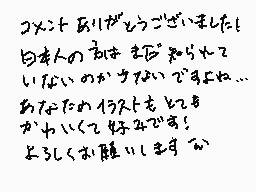 コメントありがとうございました!
日本人の方はまだ知られて
いないのか少ないですよね…
あなたのイラストもとても
かわいくて好みです!
よろしくお願いします